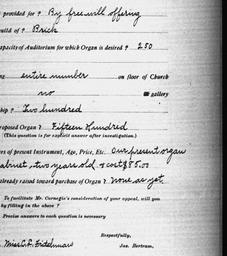 provided for ? By free will offering
build of ? Brick
apacity of Auditorium for which Organ is desired ? 250
entire number on floor of Church
no " gallery
ship ? Two hundred
roposed Organ ? Fifteen Hundred
(This question is for explicit answer after investigation.)
rs of present Instrument, Age, Price, Etc. Our present organ
cabinet, two years old, cost $85.00
already raised toward purchase of Organ ? None as yet.
To facilitate Mr. Carnegie's consideration of your appeal, will you
by filling in the above ?
Precise answers to each question is necessary
Respectfully,
Jas. Bertram,